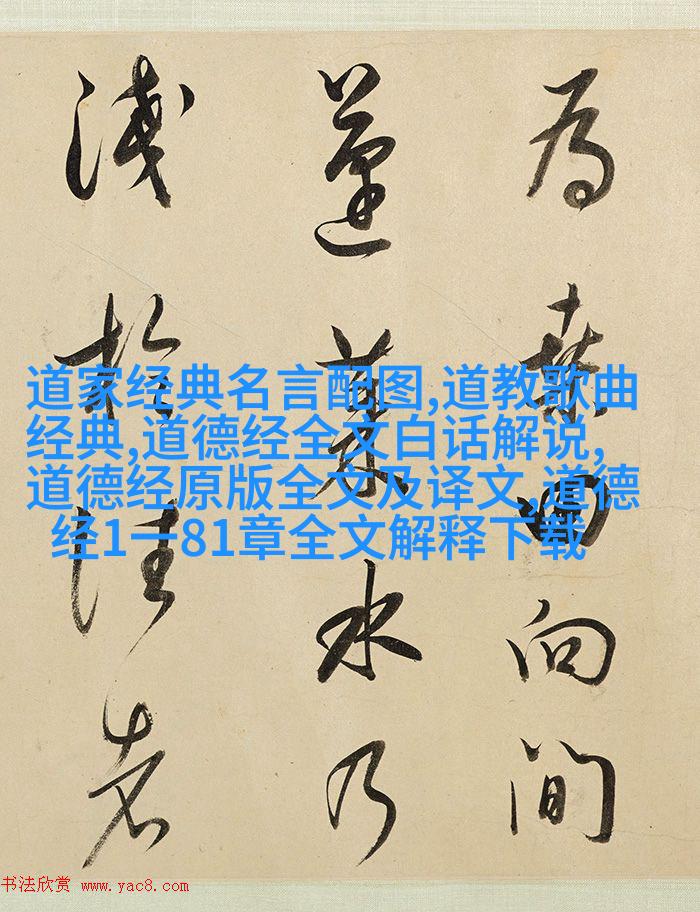 為桑田向間
蓬萊水乃
淺於往者
道家经典名言配图,道教歌曲
经典,道德经全文白话解说,
道德经原版全文及译文,道德
经1一81章全文解释下载
书法欣赏 www.yac8.com